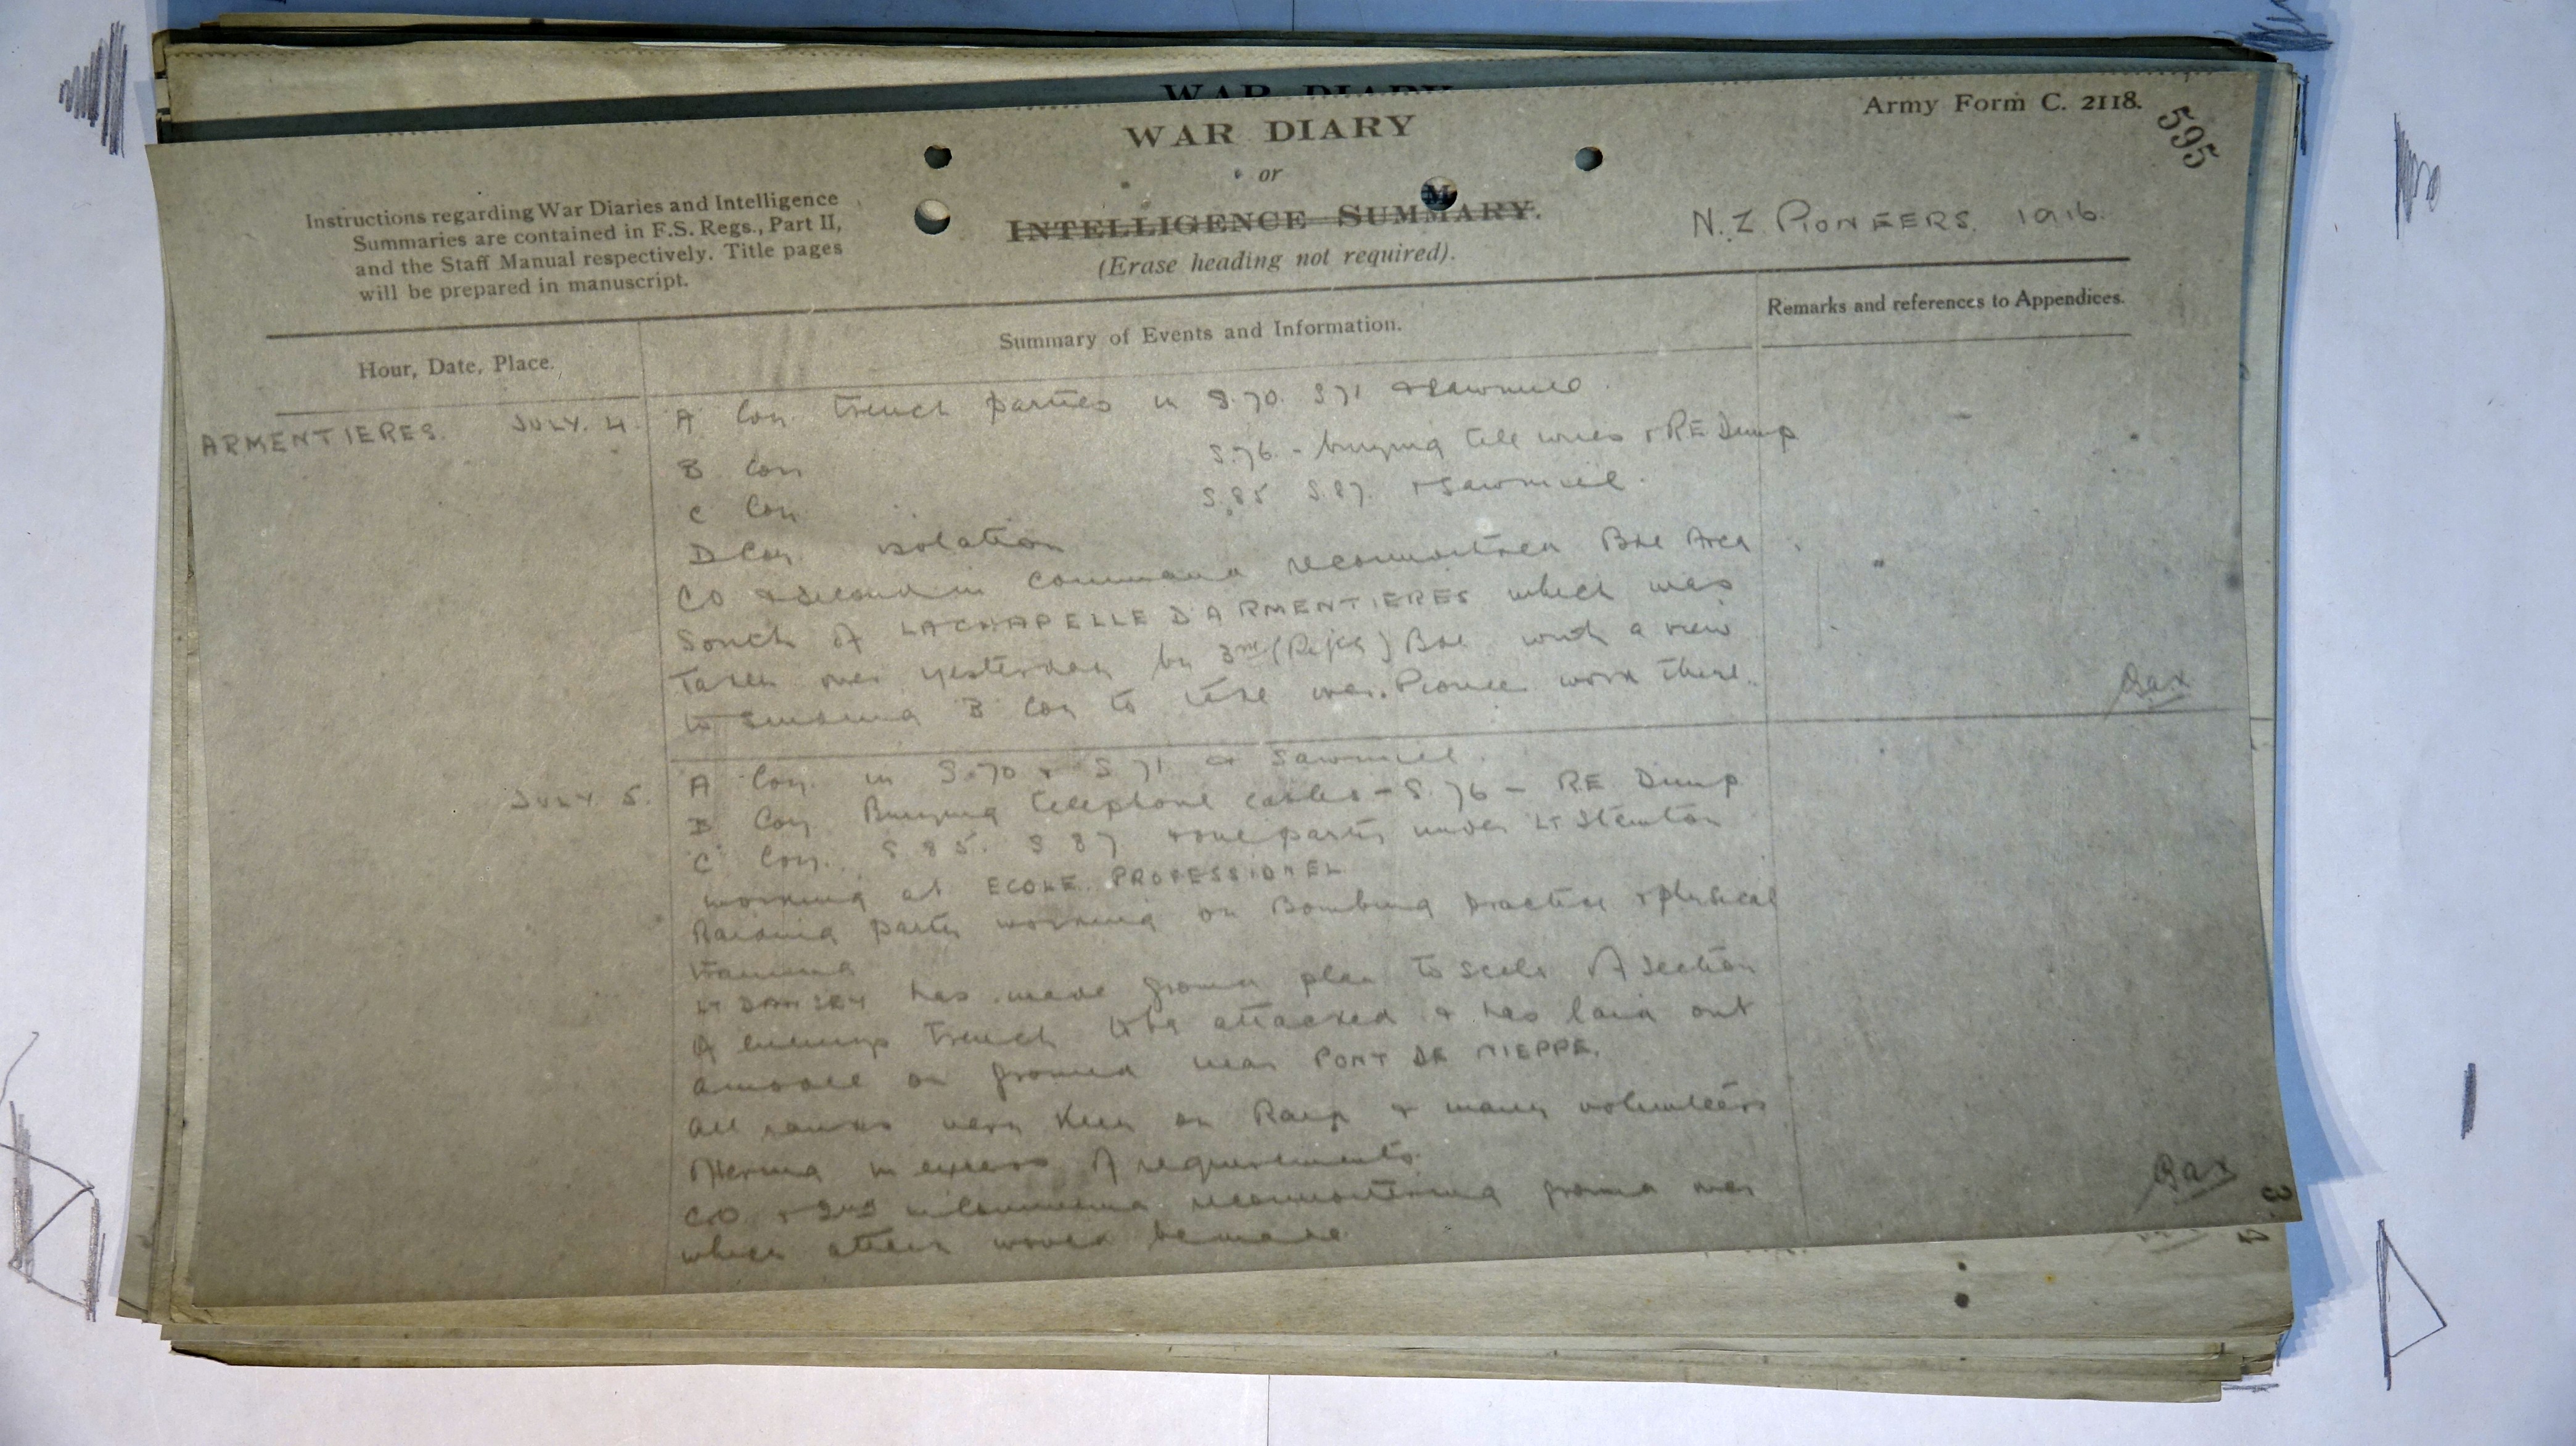 WAR DIARY
Army Form C. 2118.
595
WAR DIARY
or
INTELLIGENCE SUMMARY.
(Erase heading not required).
Instructions regarding War Diaries and Intelligence
Summaries are contained in F.S. Regs., Part II,
and the Staff Manual respectively. Title pages
will be prepared in manuscript.
N.Z. PIONEERS. 1916.
Hour, Date, Place.
Summary of Events and Information.
Remarks and references to Appendices.
ARMENTIERES. JULY. 4.
A Coy. trench parties in S.70. S71 & Sawmill.
B Coy S.76. - burying tele wires & RE Dump
C Coy S.85 S.87. & Sawmill.
D Coy. isolation
CO & Second in Command reconnoitred Bde Area
South of LA CHAPELLE D'ARMENTIERES which was
taken over yesterday by 3rd (Rifle) Bde with a view
to sending B Coy to take over Pioneer work there.
JULY 5.
A Coy. in S.70 & S 71 & Sawmill.
B Coy Burying telephone cables - S.76 - RE Dump
C Coy. S 85. S 87 & one party under Lt
working at ECOLE PROFESSIONEL
Raiding party working on Bombing practice & physical
training
LT DANSEY has made ground plan to scale of section
of enemys trench to be attacked & has laid out
a model on ground near PONT DE NIEPPE.
All ranks very keen on Raid & many volunteers
offering in excess of requirements.
C.O. & 2nd in Command reconnoitering ground over
which attack would be made.